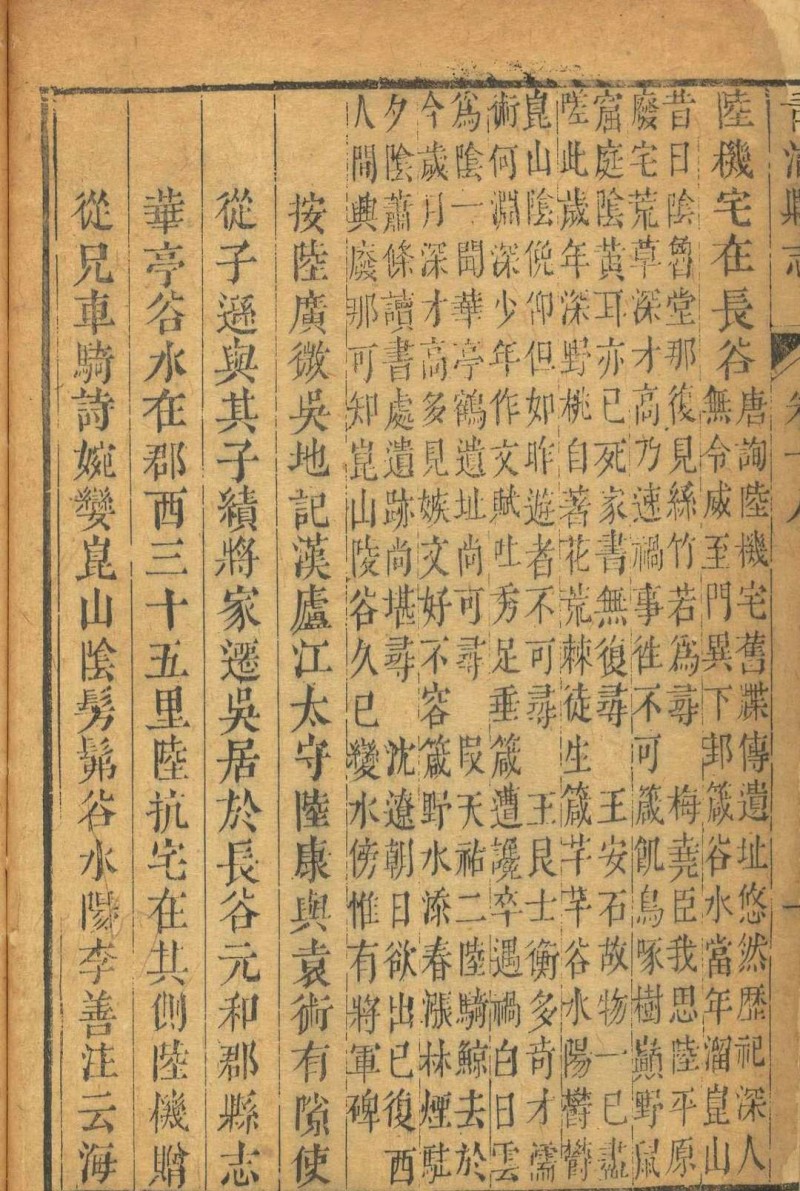 青浦縣志 卷十八
陸機宅在長谷
唐詢陸機宅舊諜傳遺址悠然歷祀深人
無令威至門異下邽箴谷水當年溜崑山
昔日陰魯堂那復見絲竹若爲尋 梅堯臣我思陸平原
廢宅荒草深才高乃速禍事徃不可箴飢烏啄樹巔野鼠
窟庭陰黃耳亦已死家書無復尋 王安石故物一已盡
嗟此歲年深野桃自著花荒棘徒生箴芊芊谷水陽欝欝
崑山陰俛仰但如昨遊者不可尋 王艮士衡多竒才濡
術何淵深少年作文賦吐秀足垂箴遭讒卒遇禍白日雲
爲陰一聞華亭鶴遺址尚可尋 叚天祐二陸騎鯨去於
今歲月深才高多見嫉文好不容箴野水添春漲林煙駐
夕陰蕭條讀書處遺跡尚堪尋 沈遼朝日欲出已復西
人間興廢那可知崑山陵谷久已變水傍惟有將軍碑
按陸廣微吳地記漢廬江太守陸康與袁術有隙使
從子遜與其子績將家遷吳居於長谷元和郡縣志
華亭谷水在郡西三十五里陸抗宅在其側陸機贈
從兄車騎詩婉孌崑山陰髣髴谷水陽李善注云海